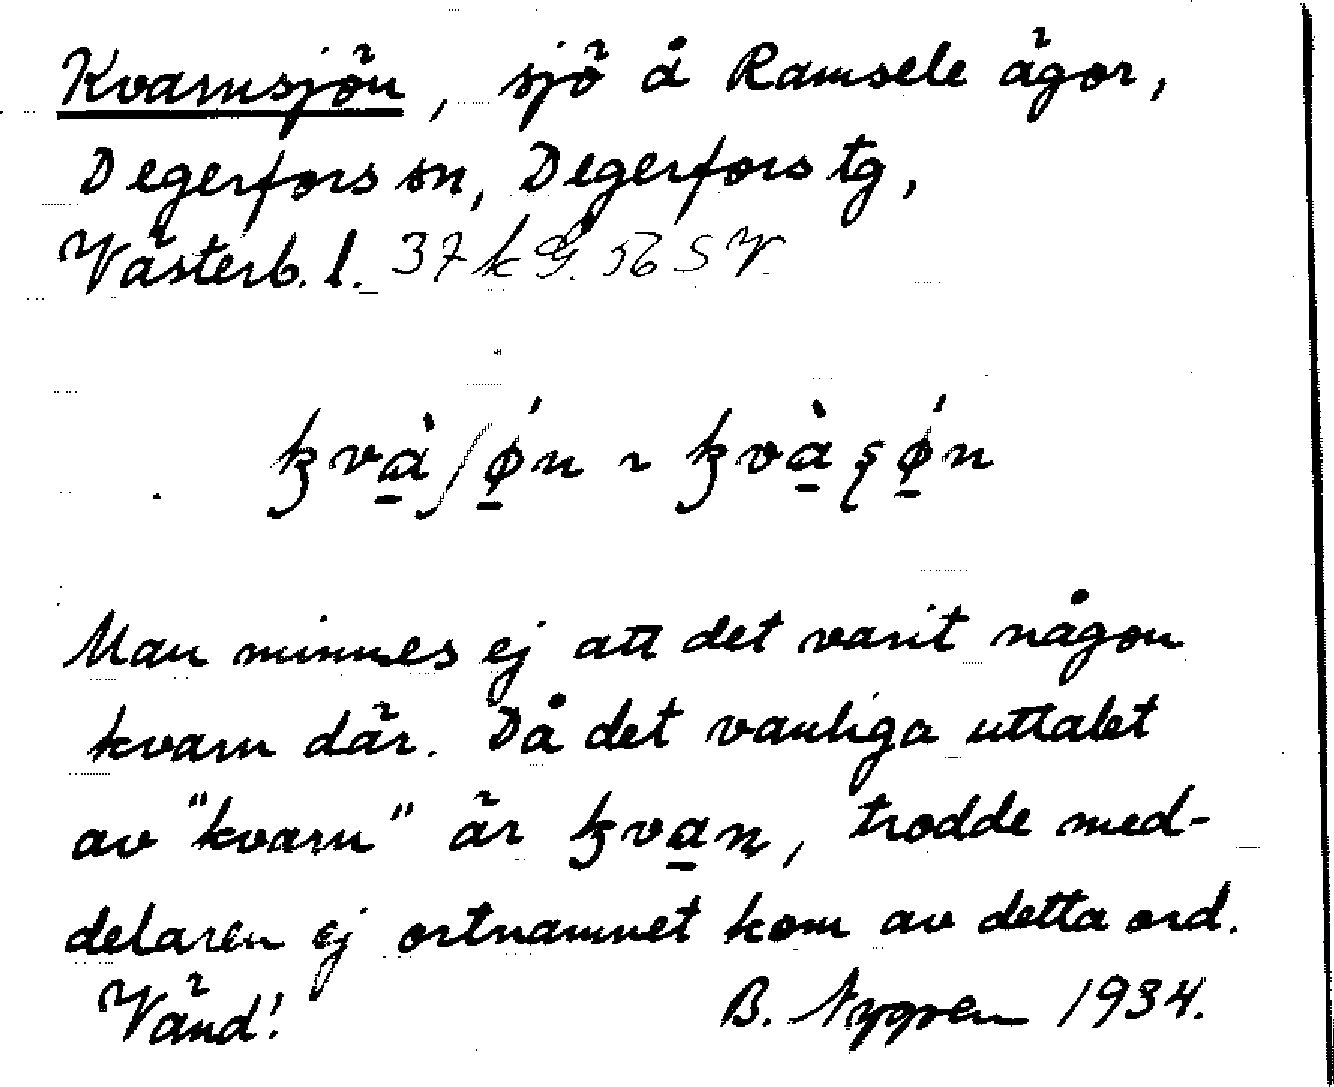 Kvarnsjön, sjö å Ramsele ägor,
Degerfors sn, Degerfors tg,
Västerb. l. 37 k G. 56 SV
Man minnes ej att det varit någon
kvarn där. Då det vanliga uttalet
av "kvarn" är kva̲ɳ, trodde med-
delaren ej ortnamnet kom av detta ord.
Vänd! B. Nygren 1934.